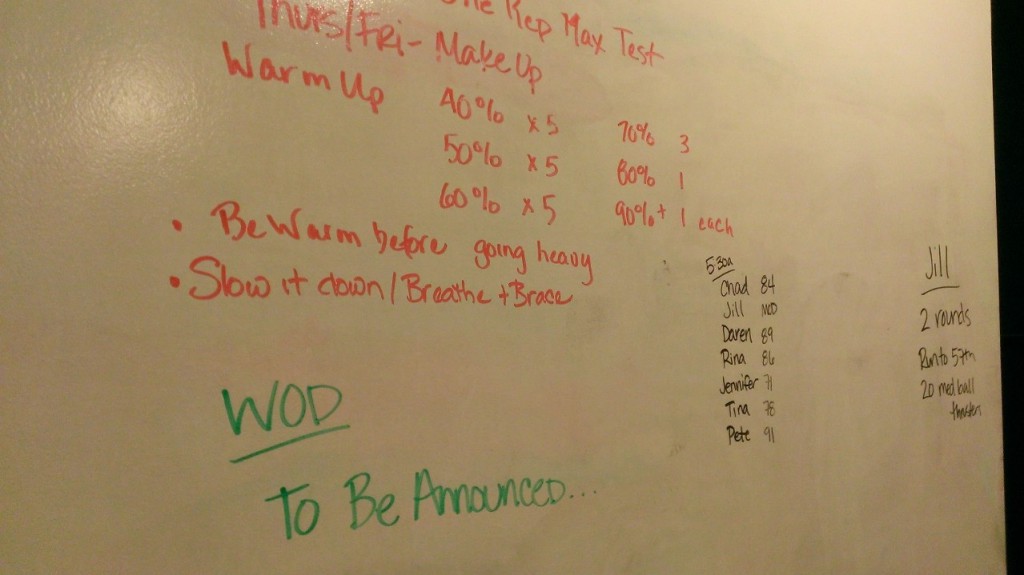 One Rep Max Test
Thurs/Fri - Make Up
Warm Up
40% x 5 70% 3
50% x 5 80% 1
60% x 5 90%+ 1 each
• Be Warm before going heavy
• Slow it down / Breathe + Brace
WOD
To Be Announced...
530a
Chad 84
Jill MOD
Daren 89
Rina 86
Jennifer 71
Tina 78
Pete 91
Jill
2 rounds
Run to 57th
20 med ball
thruster